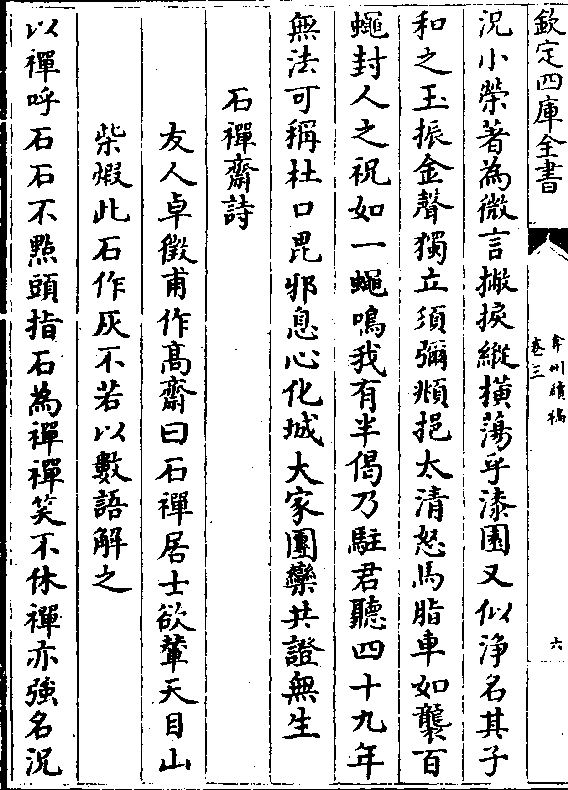 欽定四庫全書
弇州續稿
卷三
六
況小榮著為微言撇捩縱橫蕩乎漆園又似浄名其子
和之玉振金聲獨立須彌頫挹太清怒馬脂車如襲百
蠅封人之祝如一蠅鳴我有半偈乃駐君聽四十九年
無法可稱杜口毘邪息心化城大家團欒共證無生
石禪齋詩
友人卓徵甫作髙齋曰石禪居士欲輦天目山
柴煆此石作灰不若以數語解之
以禪呼石石不㸃頭指石為禪禪笑不休禪亦強名況